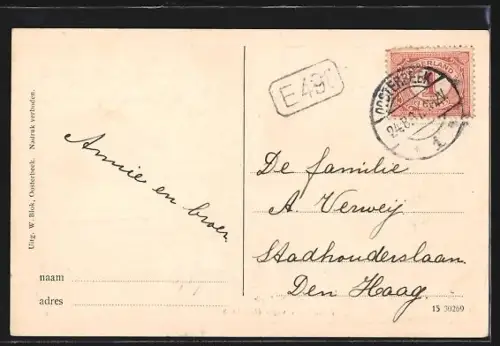 Uitg. W. Blok, Oosterbeek. Nadruk verboden.
Annie en broer
naam
adres
E 491
NEDERLAND
OOSTERBEEK
De familie
A. Verweij
Stadhouderslaan
Den Haag.
15 30269